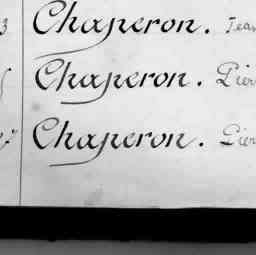 3 Chaperon. Jean
Chaperon. Pierr
Chaperon. Pierr